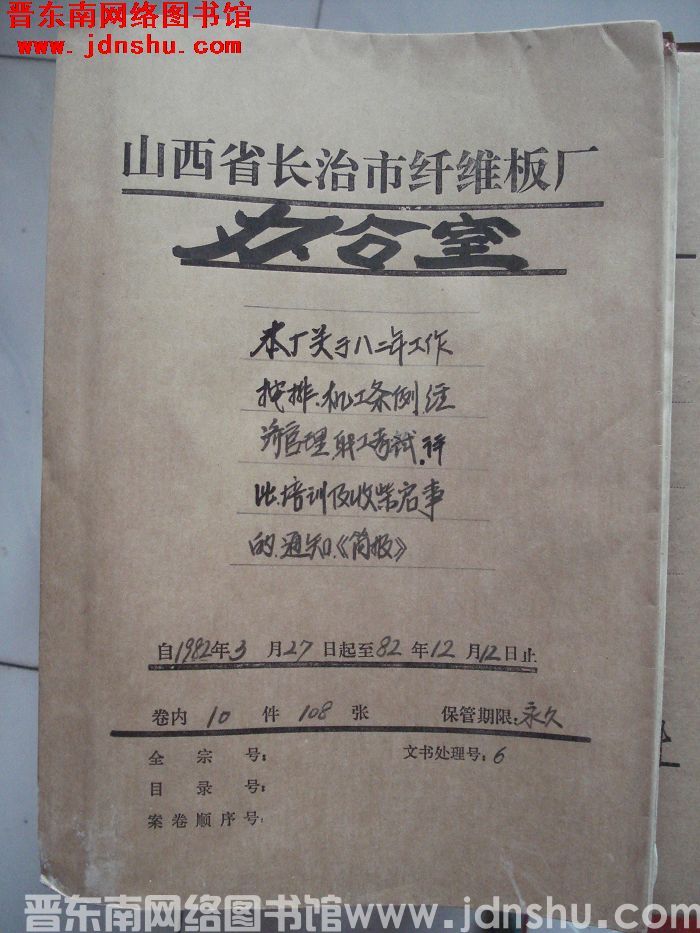 晋东南网络图书馆
www.jdnshu.com
山西省长治市纤维板厂
办公室
本厂关于八二年工作
按排、机工条例、经
济管理、职工考试、评
比、培训及收柴启事
的、通知、《简报》
自1982年3月27日起至82年12月12日止
卷内 10 件 108 张 保管期限:永久
全宗号: 文书处理号:6
目录号:
案卷顺序号:
晋东南网络图书馆www.jdnshu.com